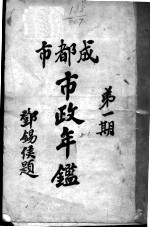 成都市
市政年鑑
第一期
鄧錫侯題